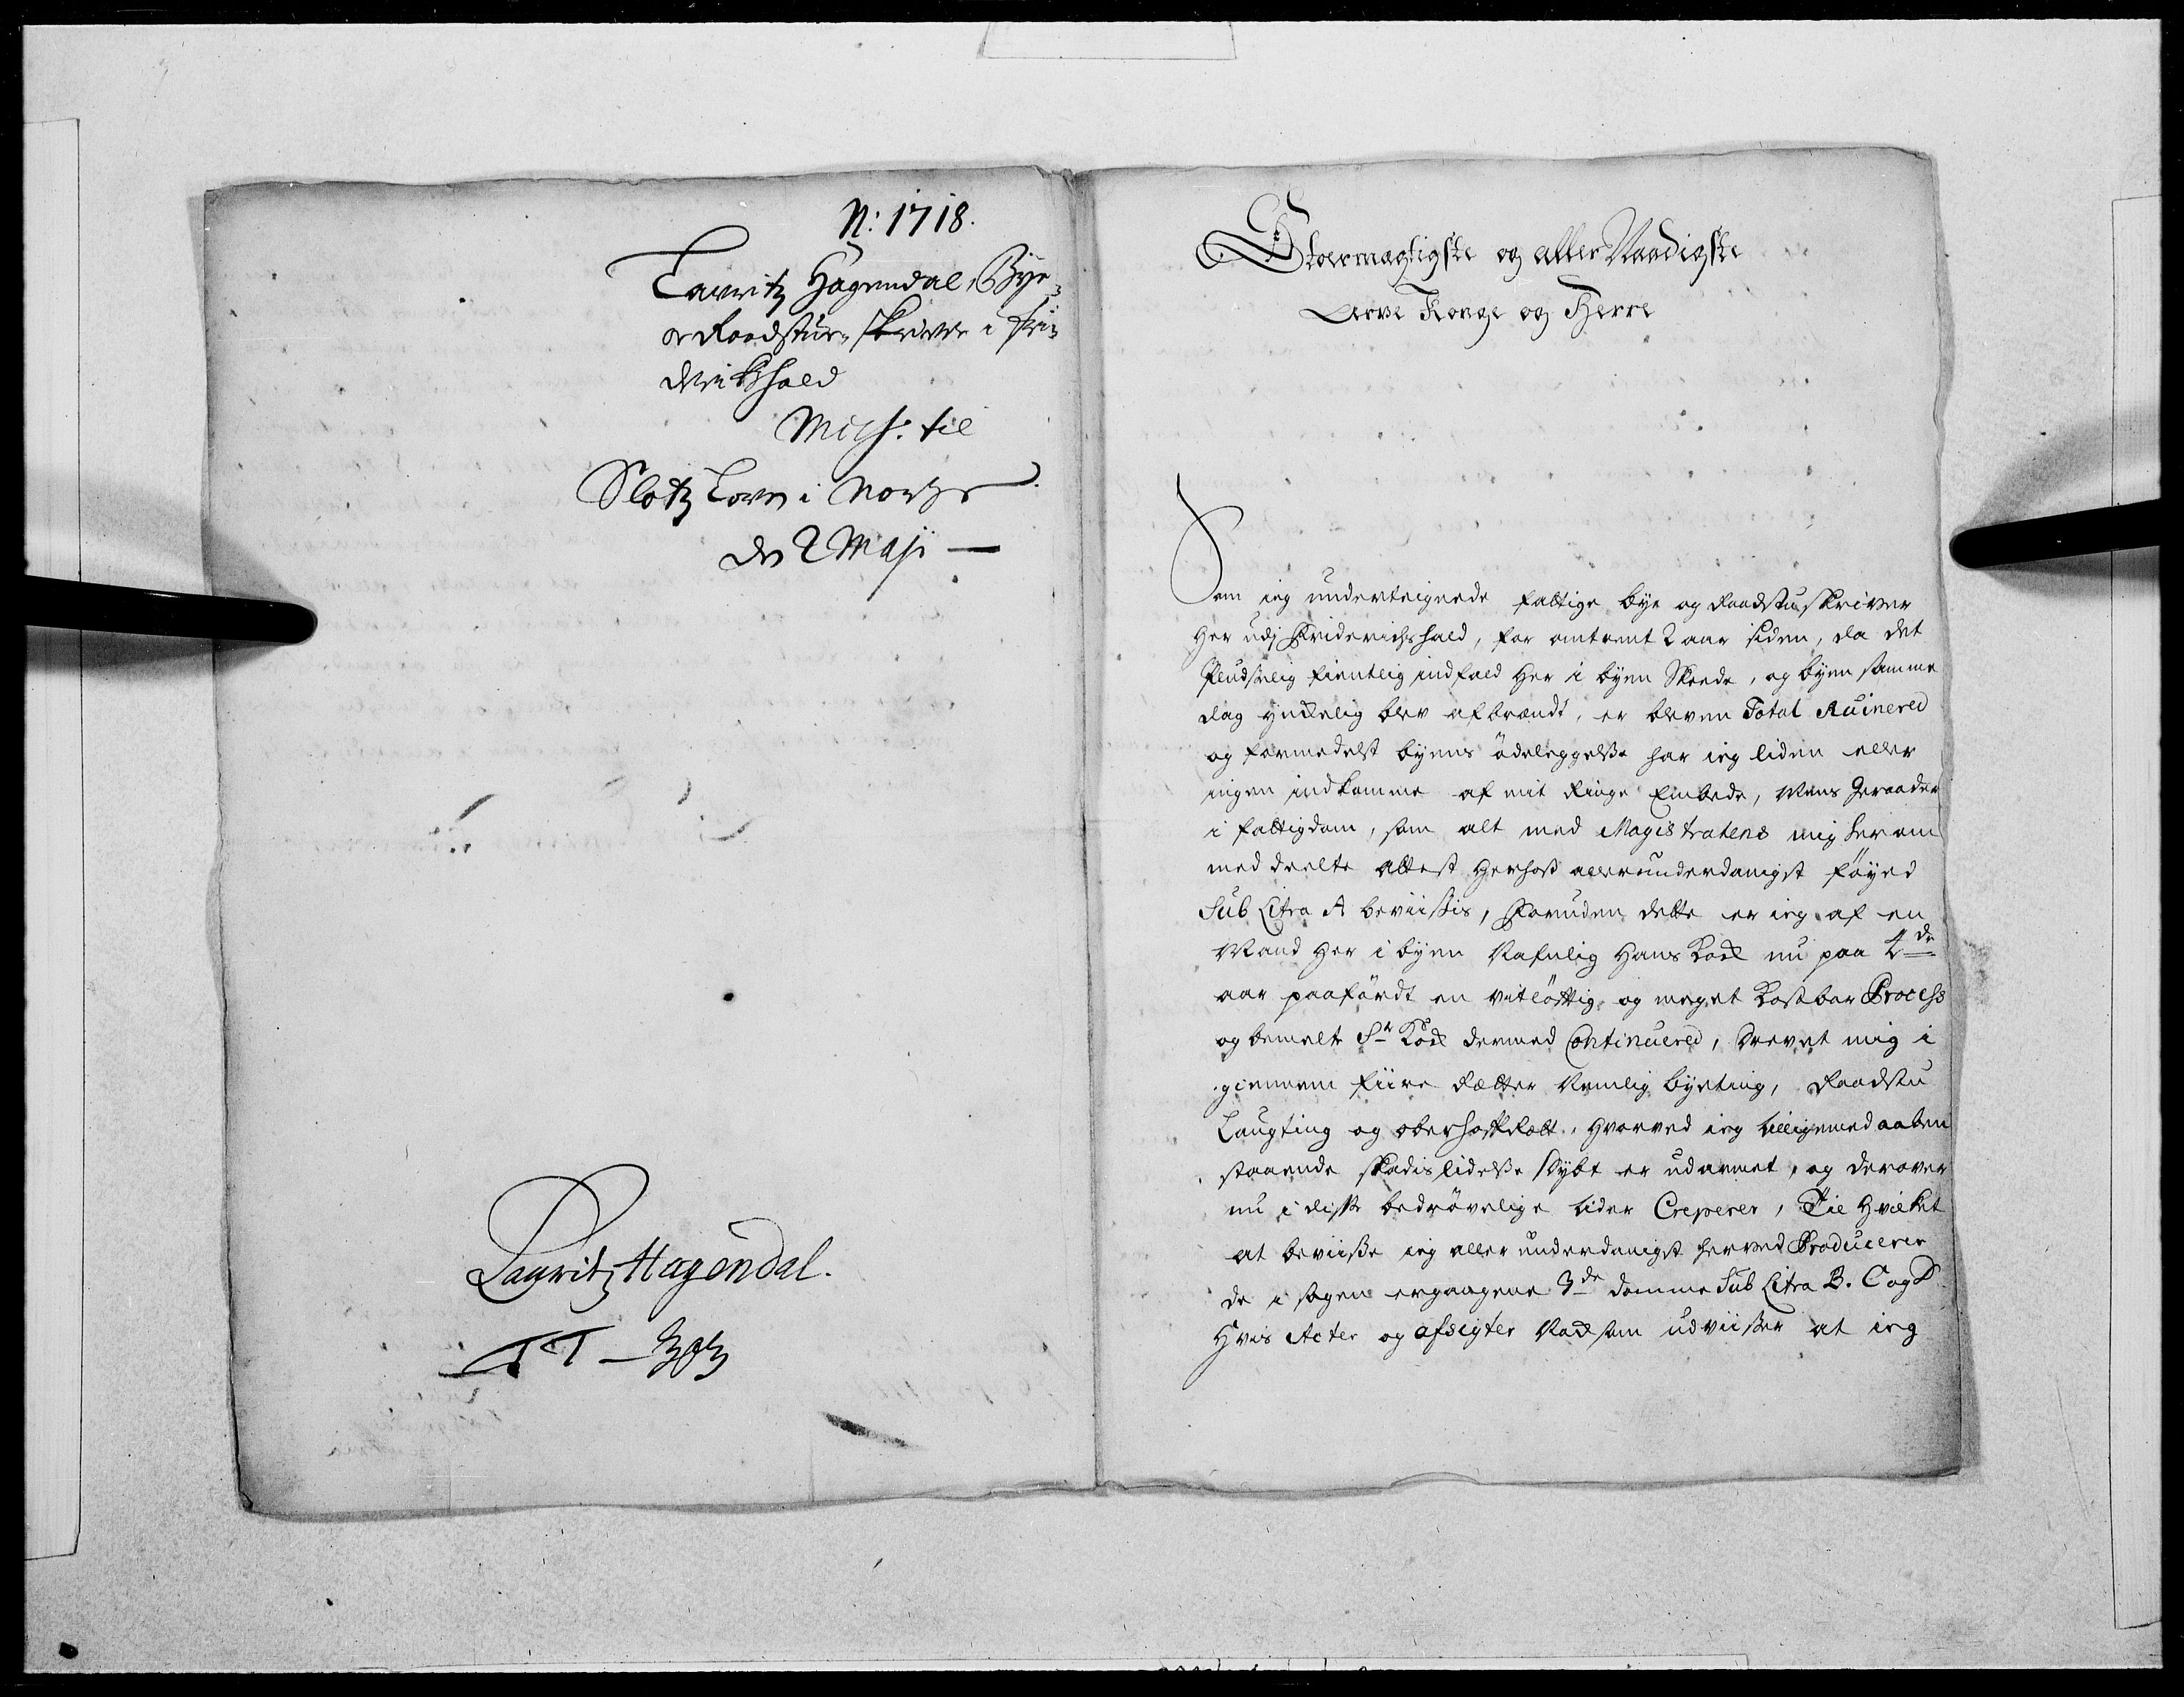 N: 1718.
Lauritz Hagendal, Bye-
og Raadstue-skriver i Fri-
drikshald
Miss. til
Slotz Lovn i Norge
den 2 Maji —
Lauritz Hagendal.
TT — 303
Stoermægtigste og aller Naadigste
Arve Konge og Herre
Som ieg underteignede fattige bye og Raadstuskriver
her udj Friderichshald, for omtremt 2 aar siden, da det
Pludselig fientlig indfald her i byen Skeede, og byen samme
dag ynckelig blev afbrændt, er bleven Total Ruinered
og formedelst byens ödeleggelse har ieg liden eller
ingen indkomme af mit Ringe Embede, Mens Geraader
i fattigdom, som alt med Magistratens mig herom
meddeelte Attest herhos allerunderdanigst föyed
Sub Litra A beviisis, Foruden dette er ieg af en
Mand her i byen Nafnlig Hans Kock nu paa 4de
aar paafördt en vitlöftig og meget Kostbar Process
og bemelte Sr Kock dermed Continuered, Drevet mig i
giennem fiire Retter Nemlig byeting, Raadstu
Laugting og oberhofRett, hvorved ieg lilligemed aaben
staaende skadislidelse Dybt er udarmet, og derover
nu i disse bedrövelige tider Creperer, Til hvilket
at beviisse ieg allerunderdanigst herved Producerer
de i sagen ergangene 3de domme Sub Litra B. C og D
Hvis Acter og afsigter Nocksom udviiser at ieg